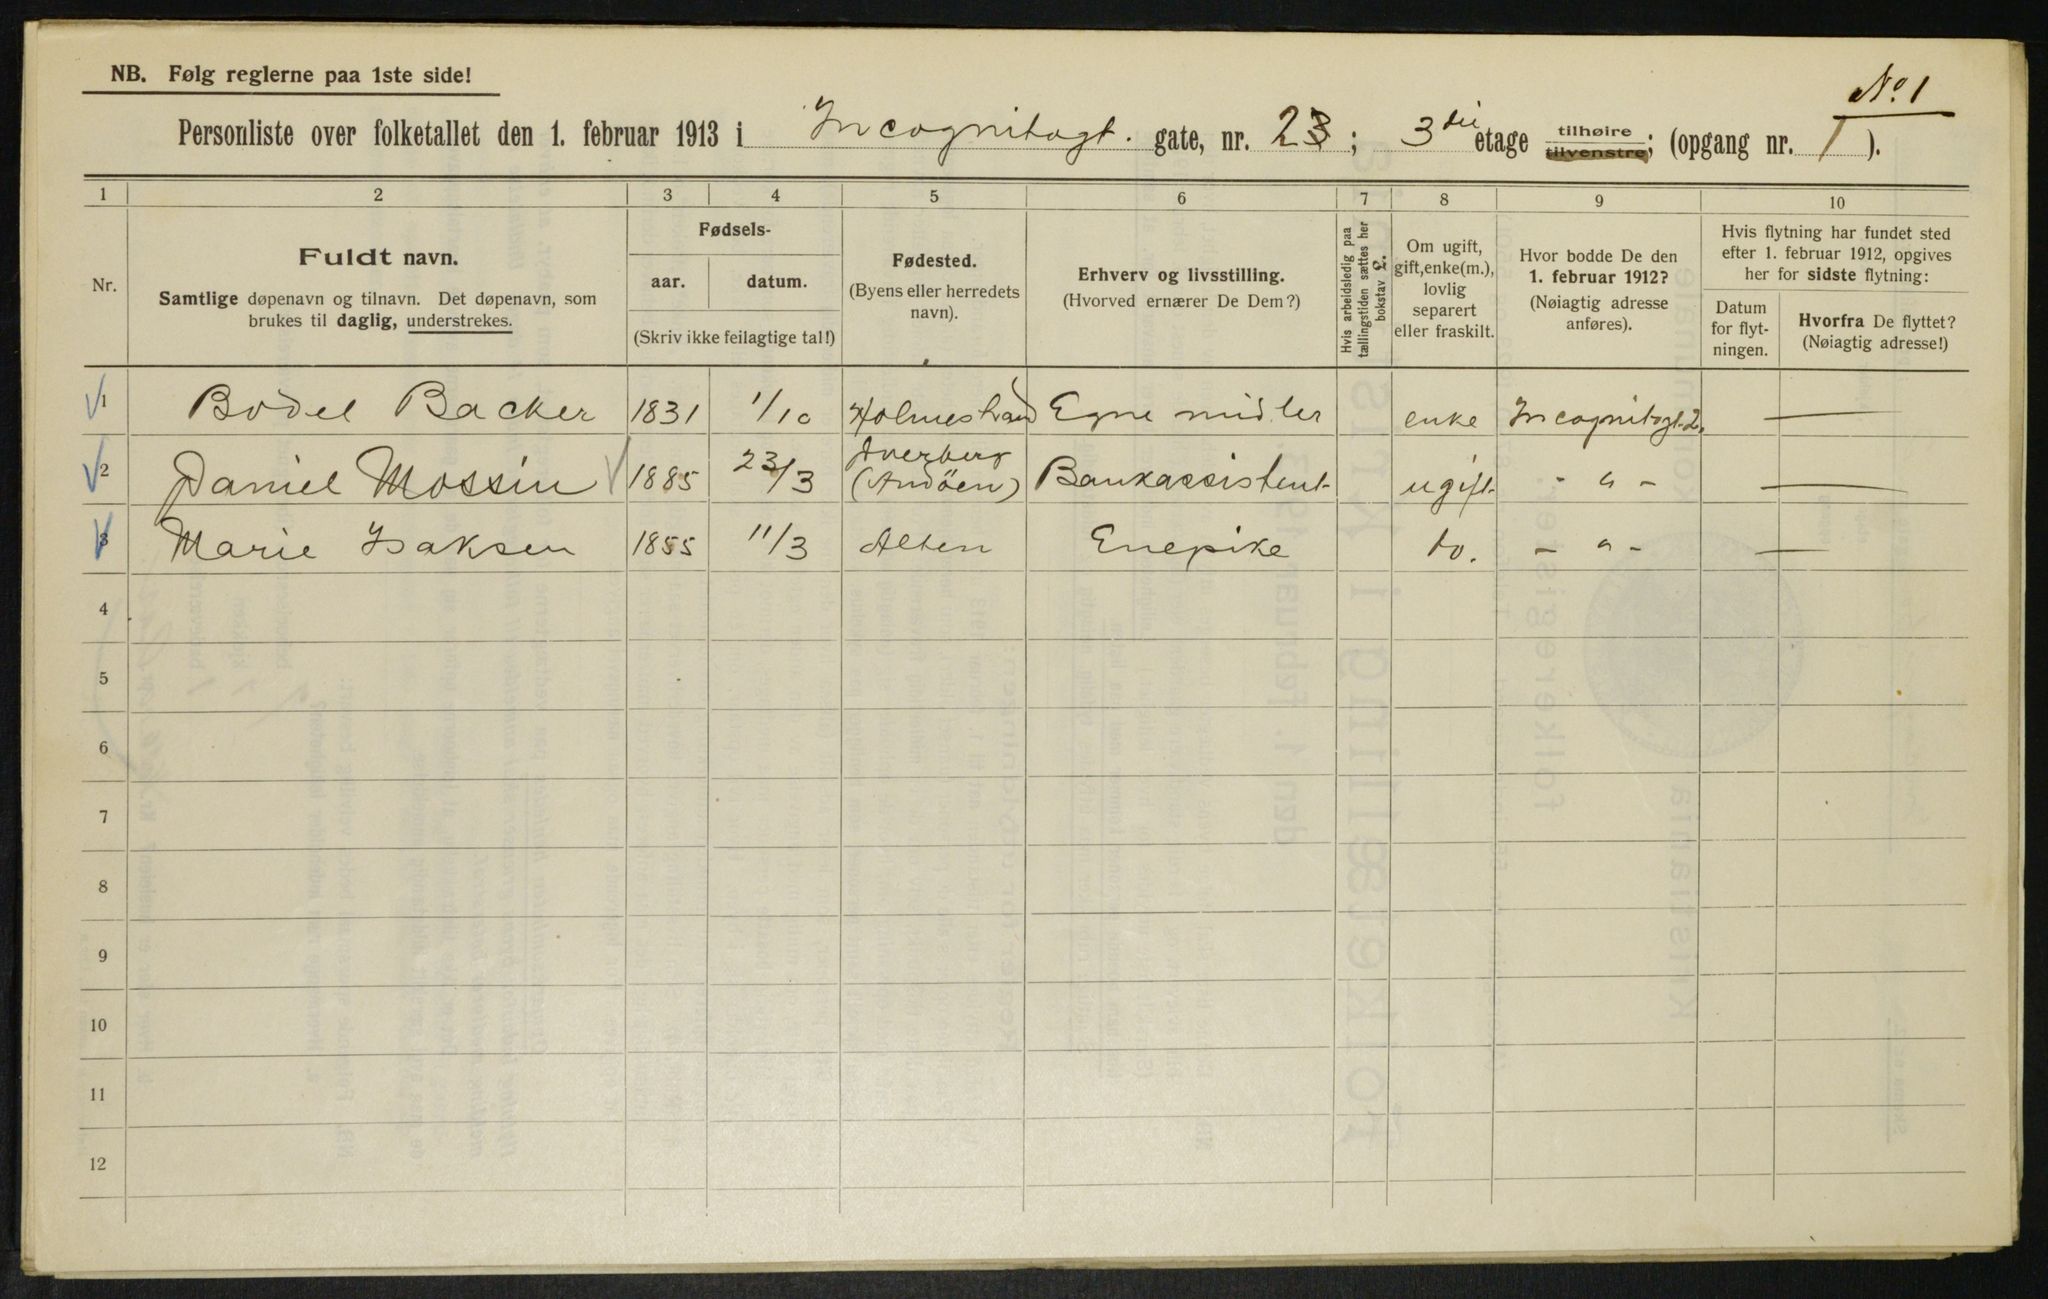 NB. Følg reglerne paa 1ste side!
No. 1
Personliste over folketallet den 1. februar 1913 i Incognitogt. gate, nr. 23; 3die etage tilhøire tilvenstre; (opgang nr. 1).
1 2 3 4 5 6 7 8 9 10
Nr.
Fuldt navn.
Samtlige døpenavn og tilnavn. Det døpenavn, som
brukes til daglig, understrekes.
Fødsels-
aar. datum.
(Skriv ikke feilagtige tal!)
Fødested.
(Byens eller herredets
navn).
Erhverv og livsstilling.
(Hvorved ernærer De Dem?)
Hvis arbeidsledig paa
tællingstiden sættes her
bokstav L.
Om ugift,
gift, enke(m.),
lovlig
separert
eller fraskilt.
Hvor bodde De den
1. februar 1912?
(Nøiagtig adresse
anføres).
Hvis flytning har fundet sted
efter 1. februar 1912, opgives
her for sidste flytning:
Datum
for flyt-
ningen.
Hvorfra De flyttet?
(Nøiagtig adresse!)
1 Bodel Backer 1831 1/10 Holmestrand Egne midler enke Incognitogt. 2. —
2 Daniel Mossin 1885 23/3 (Andöen) Bankassistent ugift - " - —
3 Marie Isaksen 1855 11/3 Alten Enepike do. - " - —
4
5
6
7
8
9
10
11
12